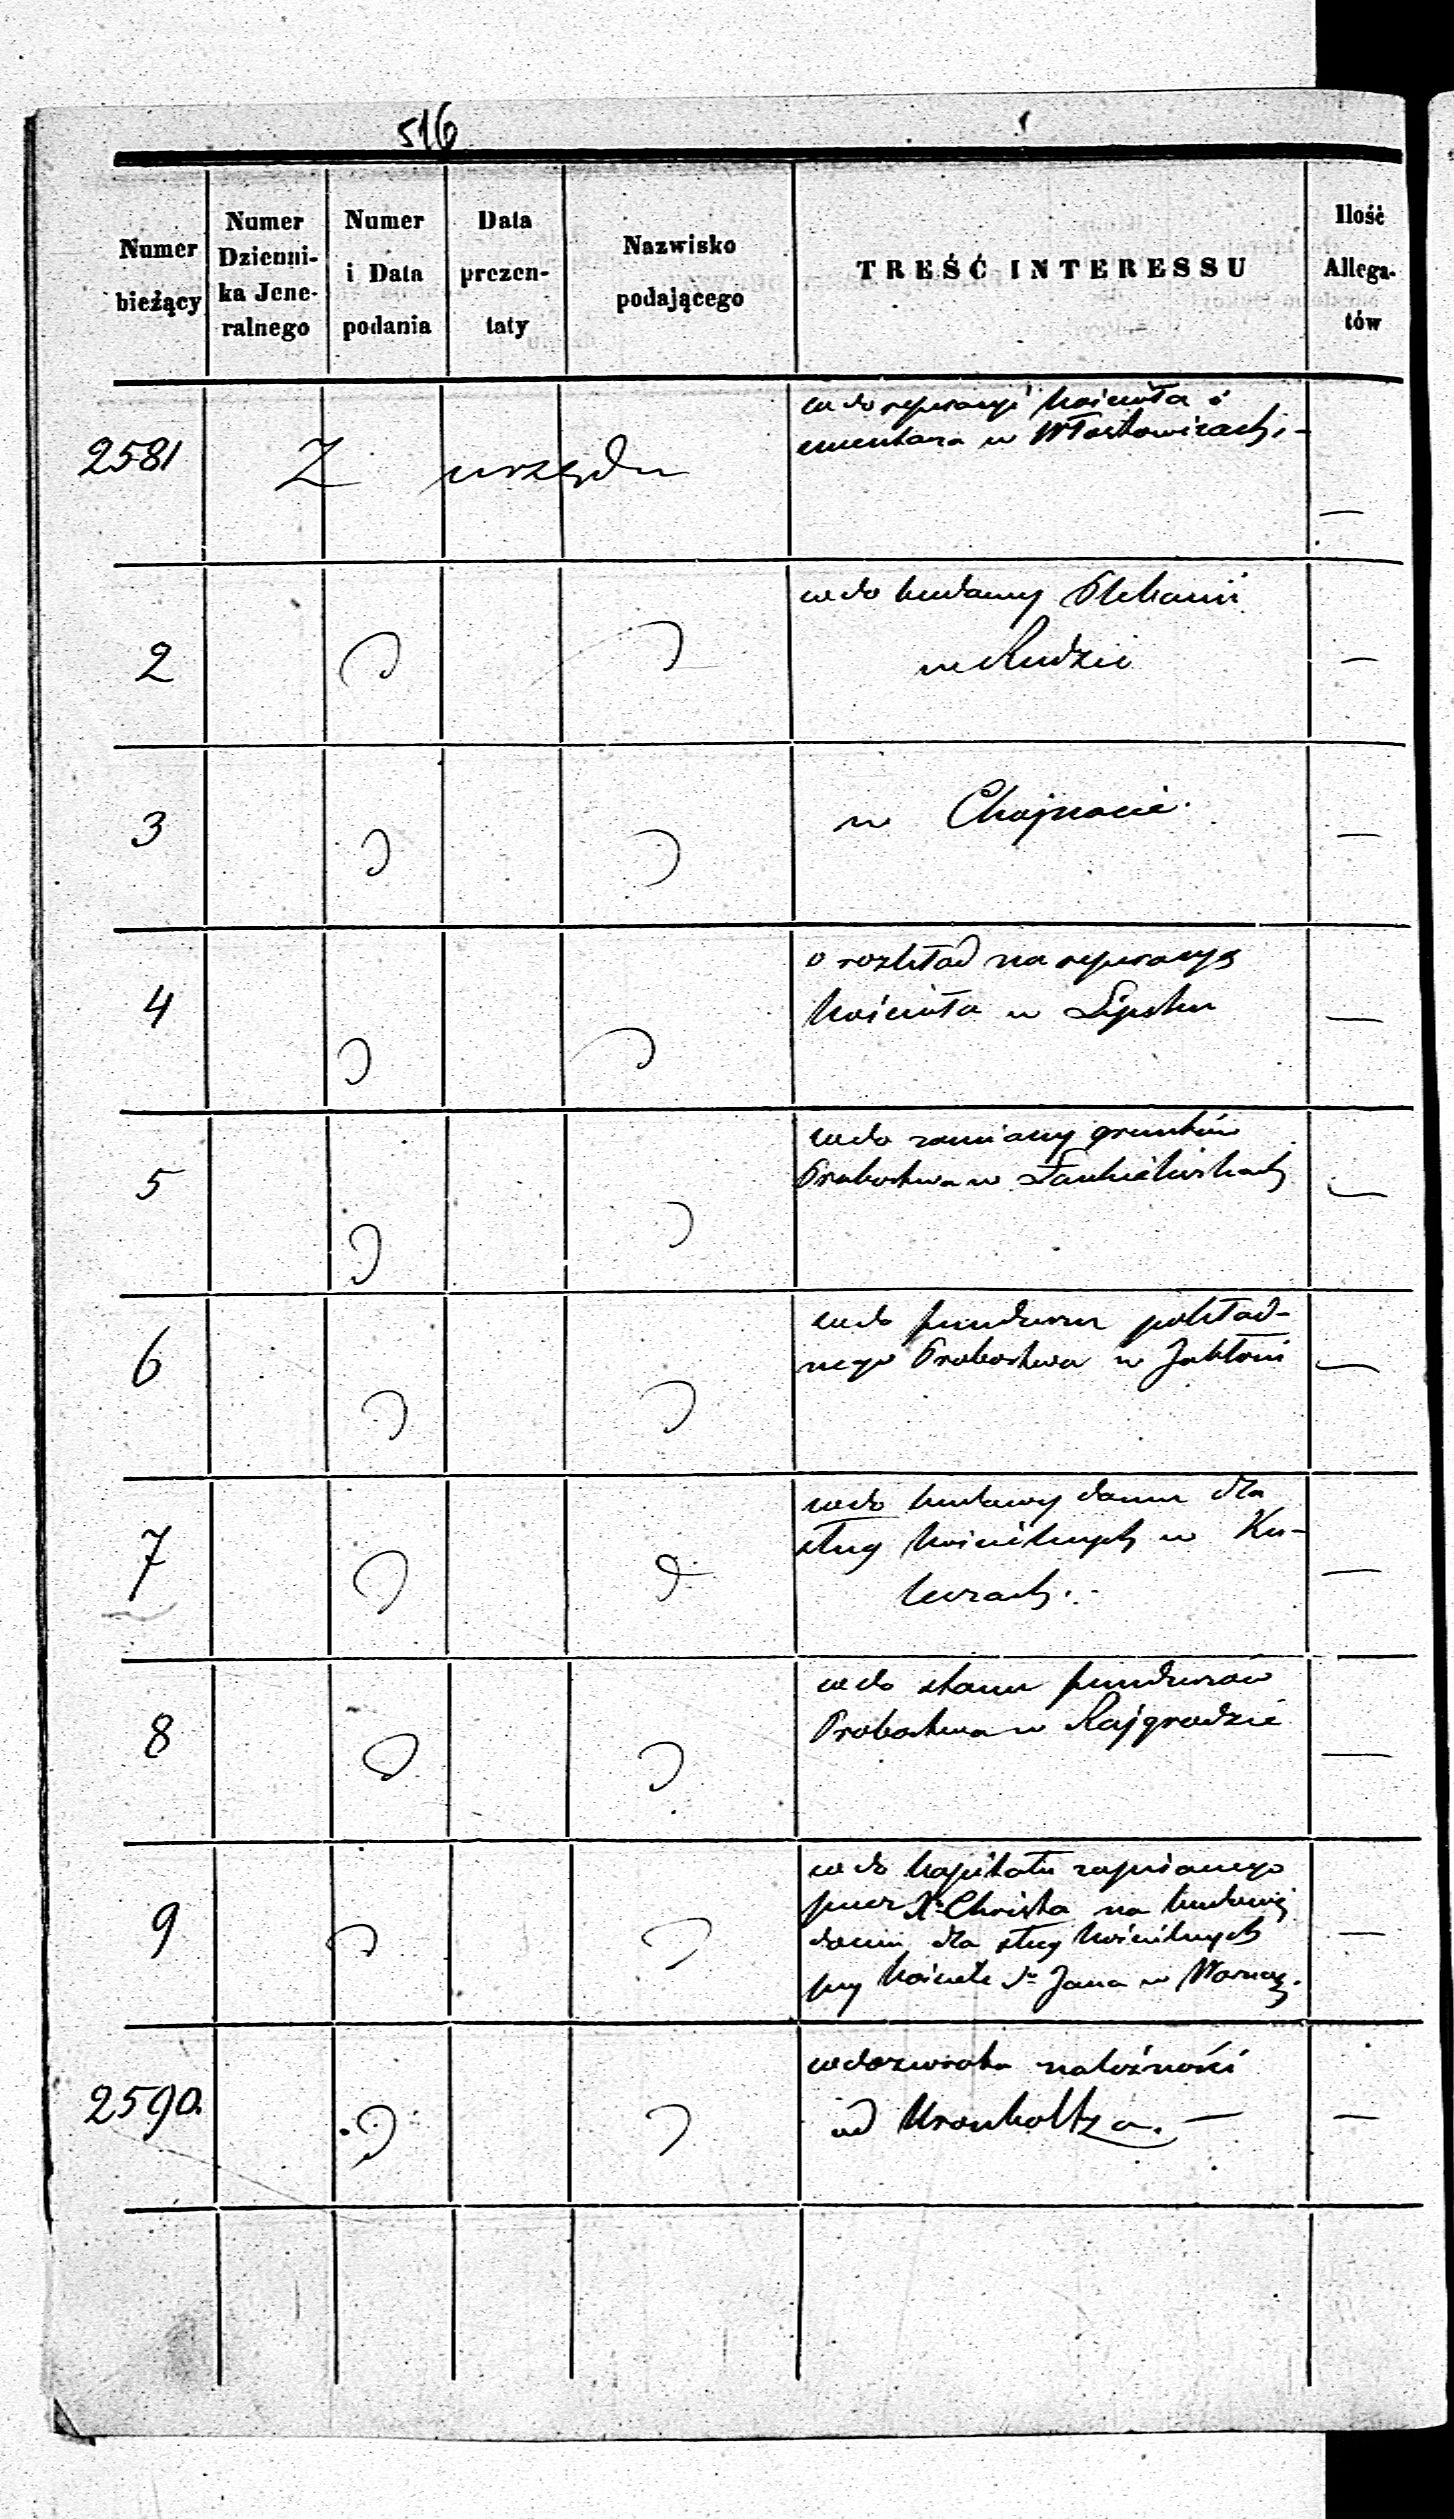 516
Numer bieżący
Numer Dzienni-ka Jene-ralnego
Numer i Data podania
Data prezen-taty
Nazwisko podającego
TREŚĆ INTERESSU
Ilość Allega-tów
2581 Z urzędu
co do reperacyi kościoła i
cmentarza w Włostowicach. –
—
2
co do budowy Plebanii
w Rudzie
—
3
w Chojnacie.
—
4
o rozkład na reperacyę
kościoła w Lipsku
—
5
co do zamiany gruntów
Probostwa w
—
6
co do funduszu pokład-
nego Probostwa w Jabłoni
—
7
co do budowy domu dla
sług kościelnych w Ku-
—
8
co do stanu funduszów
Probostwa w Rajgrodzie
—
9
co do kapitału zapisanego
przez X. Christa na budowę
domu dla sług kościelnych
przy kościele Sgo Jana w Warsz.
—
2590.
co do zwrotu należności
od Kronholtza. —
—